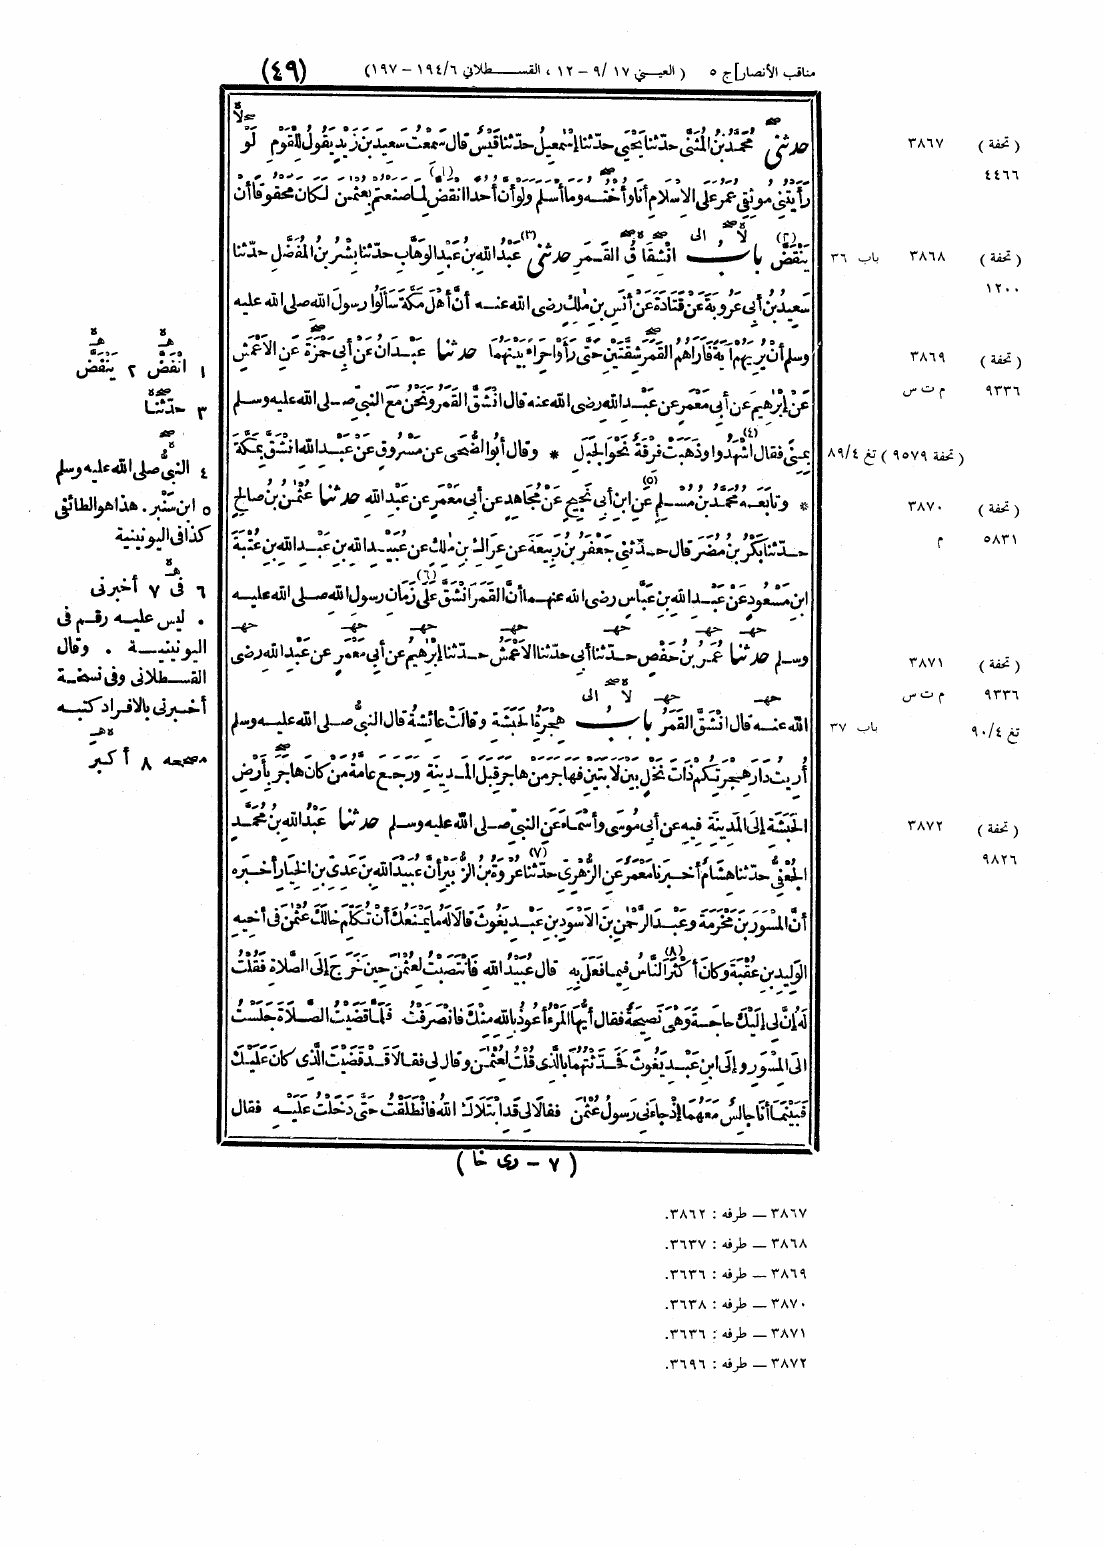 مناقب الأنصار] ج ٥ (العيني ١٧/ ٩ – ١٢، القسطلاني ٦/ ١٩٤ – ١٩٧) (٤٩)
حدثني مُحَمَّدُ بنُ المُثَنَّى حدّثنا يَحْيَى حدّثنا إسْمٰعِيلُ حدّثنا قَيْسٌ قال سَمِعْتُ سَعِيدَ بنَ زَيْدٍ يَقُولُ لِلْقَوْمِ لَوْ
رَأَيْتُنِي مُوثِقِي عُمَرُ عَلَى الإسْلامِ أنا وأُخْتُهُ وما أسْلَمَ ولَوْ أنَّ أحُدًا انْقَضَّ (١) لِمَا صَنَعْتُمْ بِعُثْمٰنَ لَكانَ مَحْقُوقًا أنْ
يَنْقَضَّ (٢) باب انْشِقَاقُ القَمَرِ حدثني (٣) عَبْدُ اللهِ بنُ عَبْدِ الوَهَّابِ حدّثنا بِشْرُ بنُ المُفَضَّلِ حدّثنا
سَعِيدُ بنُ أبي عَرُوبَةَ عَنْ قَتَادَةَ عَنْ أنَسِ بنِ مٰلِكٍ رضى الله عنه أنَّ أهْلَ مَكَّةَ سَألُوا رسولَ اللهِ صلى الله عليه
وسلم أنْ يُرِيَهُمْ آيَةً فَأرَاهُمُ القَمَرَ شِقَّتَيْنِ حَتَّى رَأوْا حِرَاءً بَيْنَهُمَا حدثنا عَبْدَانُ عَنْ أبي حَمْزَةَ عَنِ الأعْمَشِ
عَنْ إبْرٰهِيمَ عَنْ أبي مَعْمَرٍ عن عَبْدِ اللهِ رضى الله عنه قال انْشَقَّ القَمَرُ ونَحْنُ مَعَ النبيّ صلى الله عليه وسلم
بِمِنًى فقال (٤) اشْهَدُوا وذَهَبَتْ فِرْقَةٌ نَحْوَ الجَبَلِ * وقال أبُو الضُّحَى عن مَسْرُوقٍ عَنْ عَبْدِ اللهِ انْشَقَّ بِمَكَّةَ
* وتابَعَهُ مُحَمَّدُ بنُ مُسْلِمٍ (٥) عَنِ ابنِ أبي نَجِيحٍ عَنْ مُجَاهِدٍ عن أبي مَعْمَرٍ عن عَبْدِ اللهِ حدثنا عُثْمٰنُ بنُ صالِحٍ
حدّثنا بَكْرُ بنُ مُضَرَ قال حدّثني جَعْفَرُ بنُ رَبِيعَةَ عن عِرَاكِ بنِ مٰلِكٍ عن عُبَيْدِ اللهِ بنِ عَبْدِ اللهِ بنِ عُتْبَةَ
ابنِ مَسْعُودٍ عَنْ عَبْدِ اللهِ بنِ عَبَّاسٍ رضى الله عنهما أنَّ القَمَرَ انْشَقَّ عَلَى (٦) زَمَانِ رسولِ اللهِ صلى الله عليه
وسلم حدثنا عُمَرُ بنُ حَفْصٍ حدّثنا أبي حدّثنا الأعْمَشُ حدّثنا إبْرٰهِيمُ عن أبي مَعْمَرٍ عن عَبْدِ اللهِ رضى
الله عنه قال انْشَقَّ القَمَرُ باب هِجْرَةُ الحَبَشَةِ وقالَتْ عائِشَةُ قال النبيُّ صلى الله عليه وسلم
أُرِيتُ دَارَ هِجْرَتِكُمْ ذَاتَ نَخْلٍ بَيْنَ لابَتَيْنِ فَهاجَرَ مَنْ هاجَرَ قِبَلَ المَدِينَةِ ورَجَعَ عامَّةُ مَنْ كانَ هاجَرَ بِأرْضِ
الحَبَشَةِ إلى المَدِينَةِ فِيهِ عن أبي مُوسَى وأسْمَاءَ عَنِ النبيّ صلى الله عليه وسلم حدثنا عَبْدُ اللهِ بنُ مُحَمَّدٍ
الجُعْفِيُّ حدّثنا هِشَامٌ أخبرنا مَعْمَرٌ عَنِ الزُّهْرِيِّ حدّثنا (٧) عُرْوَةُ بنُ الزُّبَيْرِ أنَّ عُبَيْدَ اللهِ بنَ عَدِيِّ بنِ الخِيَارِ أخبره
أنَّ المِسْوَرَ بنَ مَخْرَمَةَ وعَبْدَ الرَّحْمٰنِ بنَ الأسْوَدِ بنِ عَبْدِ يَغُوثَ قالا لَهُ ما يَمْنَعُكَ أنْ تُكَلِّمَ خالَكَ عُثْمٰنَ في أخِيهِ
الوَلِيدِ بنِ عُقْبَةَ وكانَ أكْثَرَ (٨) النَّاسُ فِيمَا فَعَلَ بِهِ قال عُبَيْدُ اللهِ فَانْتَصَبْتُ لِعُثْمٰنَ حِينَ خَرَجَ إلى الصَّلاةِ فَقُلْتُ
لَهُ إنَّ لي إلَيْكَ حاجَةً وهْيَ نَصِيحَةٌ فقال أيُّهَا المَرْءُ أعُوذُ بِاللهِ مِنْكَ فانْصَرَفْتُ فَلَمَّا قَضَيْتُ الصَّلاةَ جَلَسْتُ
إلى المِسْوَرِ وإلى ابنِ عَبْدِ يَغُوثَ فَحَدَّثْتُهُمَا بِالَّذِي قُلْتُ لِعُثْمٰنَ وقال لي فقالا قَدْ قَضَيْتَ الَّذِي كانَ عَلَيْكَ
فَبَيْنَمَا أنا جالِسٌ مَعَهُمَا إذْ جاءَنِي رَسُولُ عُثْمٰنَ فقالا لي قَدِ ابْتَلاكَ اللهُ فَانْطَلَقْتُ حَتَّى دَخَلْتُ عَلَيْهِ فقال
(٧ – رى خا)
(تحفة) ٣٨٦٧
٤٤٦٦
(تحفة) ٣٨٦٨ باب ٣٦
١٢٠٠
(تحفة) ٣٨٦٩
٩٣٣٦ م ت س
(تحفة ٩٥٧٩) تغ ٤/ ٨٩
(تحفة) ٣٨٧٠
٥٨٣١ م
(تحفة) ٣٨٧١
٩٣٣٦ م ت س
تغ ٤/ ٩٠ باب ٣٧
(تحفة) ٣٨٧٢
٩٨٢٦
١ انْفَضَّ ٢ يَنْفَضَّ
٣ حدّثنا
٤ النبيّ صلى الله عليه وسلم
٥ ابن سَنْبَر. هذا هو الطائفي
كذا في اليونينية
٦ في ٧ أخبرني
. ليس عليه رقم في
اليونينية. وقال
القسطلاني وفي نسخة
أخبرني بالافراد كتبه
مصححه ٨ أكبر
٣٨٦٧ – طرفه : ٣٨٦٢.
٣٨٦٨ – طرفه : ٣٦٣٧.
٣٨٦٩ – طرفه : ٣٦٣٦.
٣٨٧٠ – طرفه : ٣٦٣٨.
٣٨٧١ – طرفه : ٣٦٣٦.
٣٨٧٢ – طرفه : ٣٦٩٦.